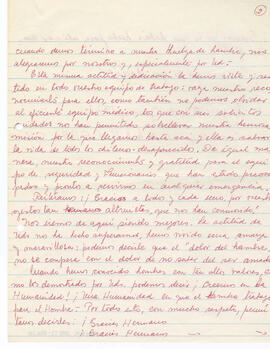 2
cuando demos término a nuestra Huelga de hambre, nos
alegramos por nosotros y especialmente por Uds.-
Esta misma actitud y dedicación la hemos visto y sen-
tido en todo nuestro equipo de trabajo: vaya nuestro reco-
nocimiento para ellos, como también no podemos olvidar
al eficiente equipo médico, los que con sus solícitos
cuidados no han permitido
misión por la que llegamos hasta acá y ella es salvar
la vida de todos los detenidos-desaparecidos. De igual ma-
nera, nuestro reconocimiento y gratitud para el equi-
po de seguridad y funcionarios que han estado preocu-
pados y prontos a servirnos en cualquier emergencia.
¡Gracias a todos y cada uno, por sus
gestos tan humanos altruistas, que nos han conmovido!
Nos iremos de aquí siendo mejores. La actitud de
Uds. no ha sido esperanza, han sido una, amarga
y maravillosa: podemos decirle que el dolor del hambre
no se compara con el dolor de no saber del ser amado.
Cuando hemos conocido hombres con tan altos valores, co-
mo los demostrado por Uds. podemos decir: ¡Creemos en la
Humanidad! ¡Una Humanidad en que el Hombre trabaja
para el Hombre! Por todo esto, con mucho respeto, permí-
tanos decirles: ¡Gracias Hermano
¡Gracias Hermana